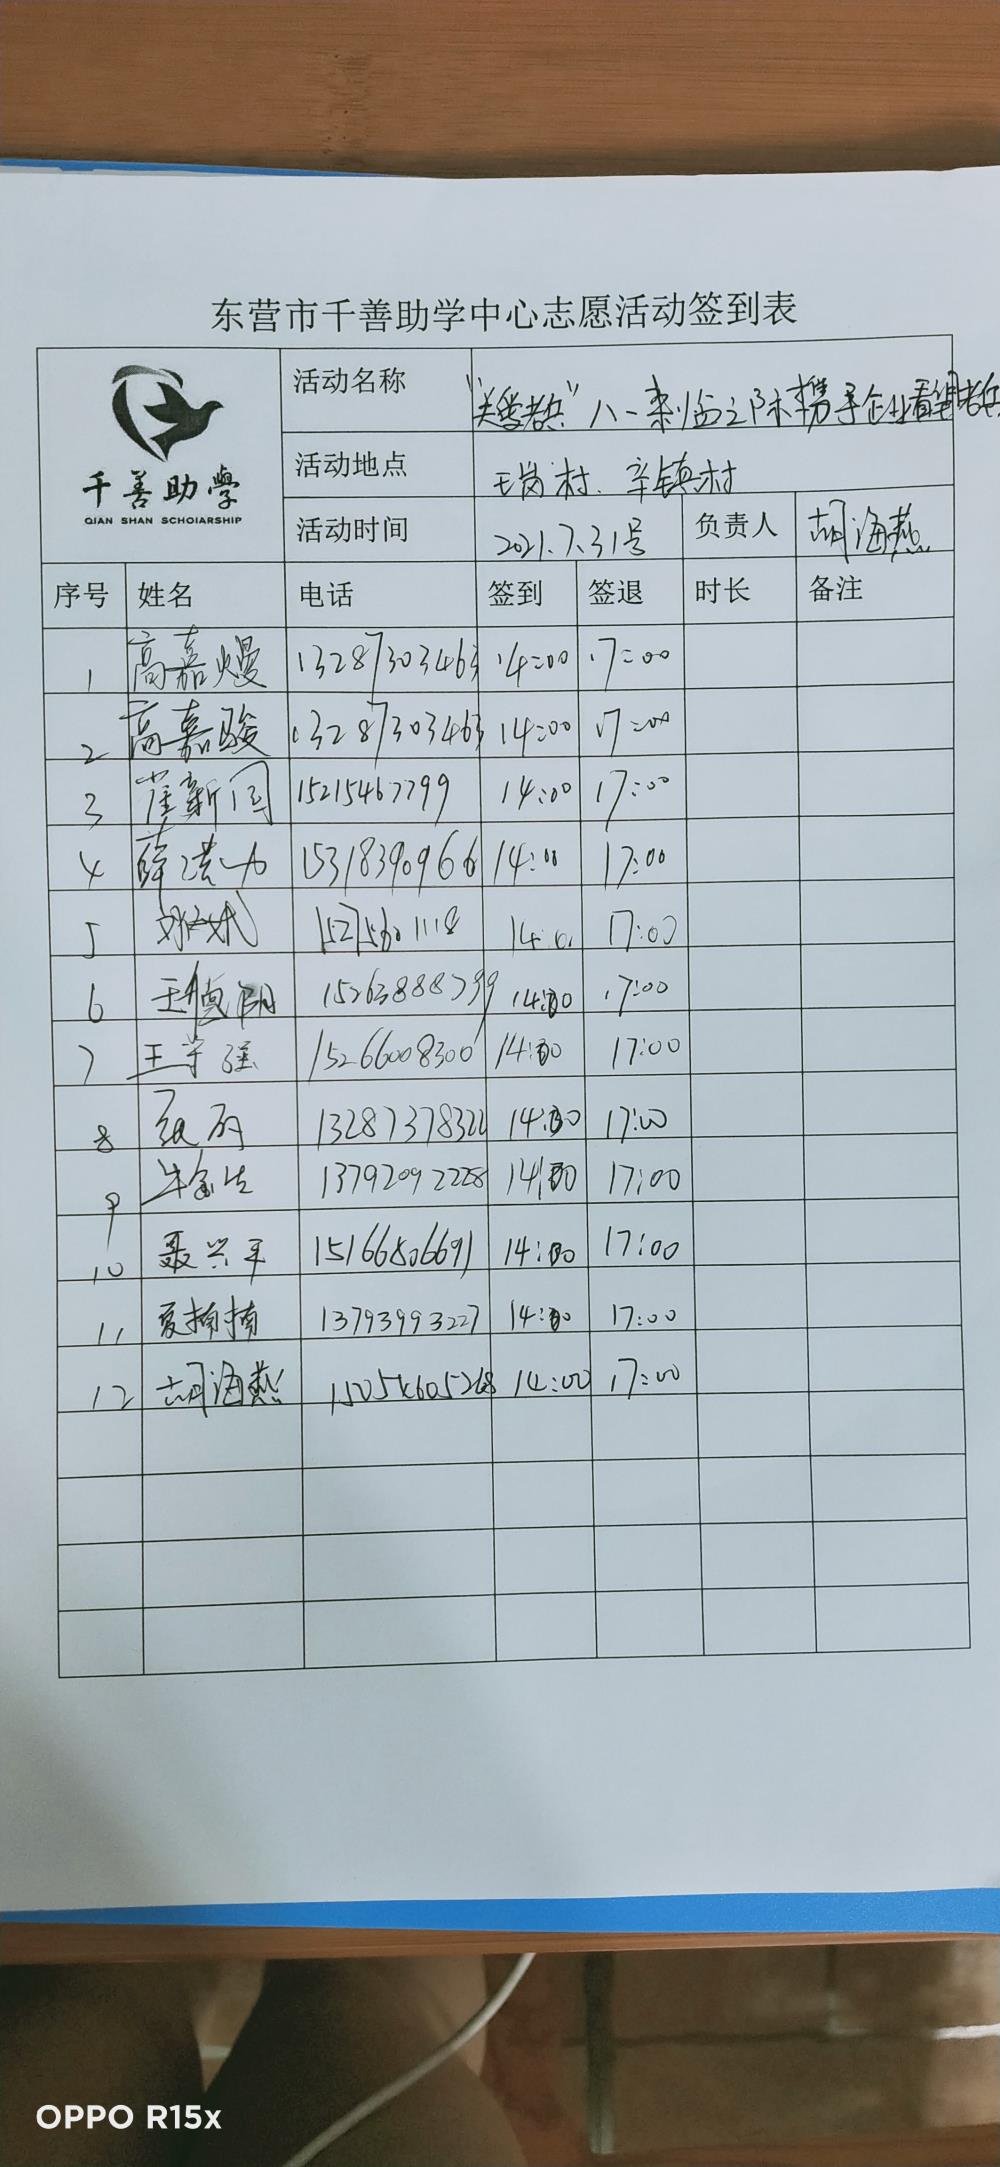 东营市千善助学中心志愿活动签到表
千善助學
QIAN SHAN SCHOIARSHIP
活动名称 "关爱老兵"八一来临之际携手企业看望老兵
活动地点 王岗村、辛镇村
活动时间 2021.7.31号 负责人 胡海燕
序号 姓名 电话 签到 签退 时长 备注
1 高嘉熳 13287303463 14:00 17:00
2 高嘉骏 13287303463 14:00 17:00
3 崔新国 15215467799 14:00 17:00
4 薛 15318390966 14:00 17:00
5 14:00 17:00
6 王德阳 15263888799 14:00 17:00
7 王守强 15266008300 14:00 17:00
8 14:00 17:00
9 牛金生 13792092228 14:00 17:00
10 聂兴军 15166806691 14:00 17:00
11 夏楠楠 13793993227 14:00 17:00
12 胡海燕 15054605268 14:00 17:00
OPPO R15x